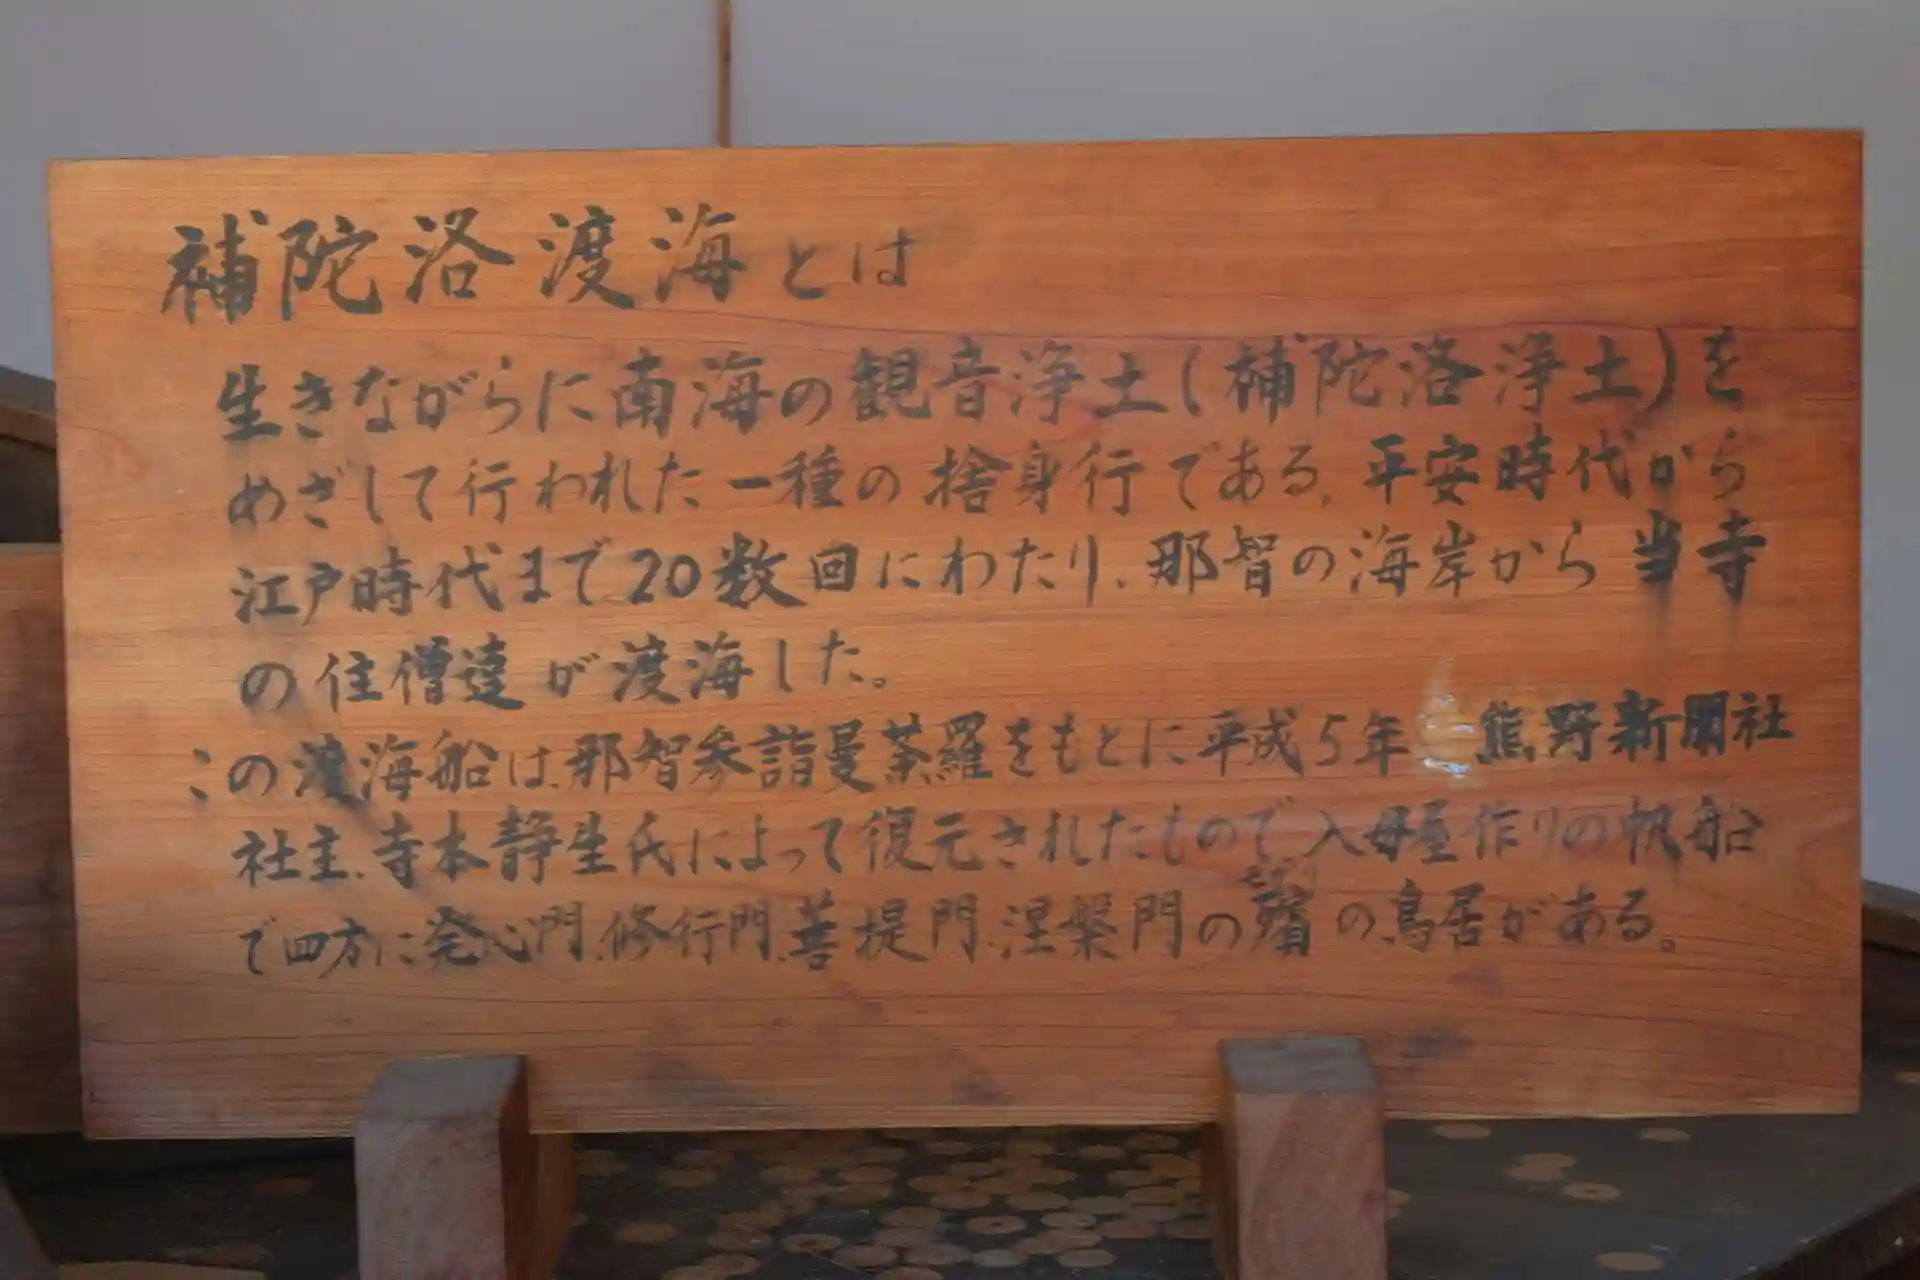 補陀洛渡海とは
生きながらに南海の観音浄土(補陀洛浄土)を
めざして行われた一種の捨身行である。平安時代から
江戸時代まで20数回にわたり、那智の海岸から当寺
の住僧達が渡海した。
この渡海船は、那智参詣曼荼羅をもとに平成5年 熊野新聞社
社主、寺本静生氏によって復元されたもので入母屋作りの帆船
で四方に発心門、修行門、菩提門、涅槃門の殯の鳥居がある。